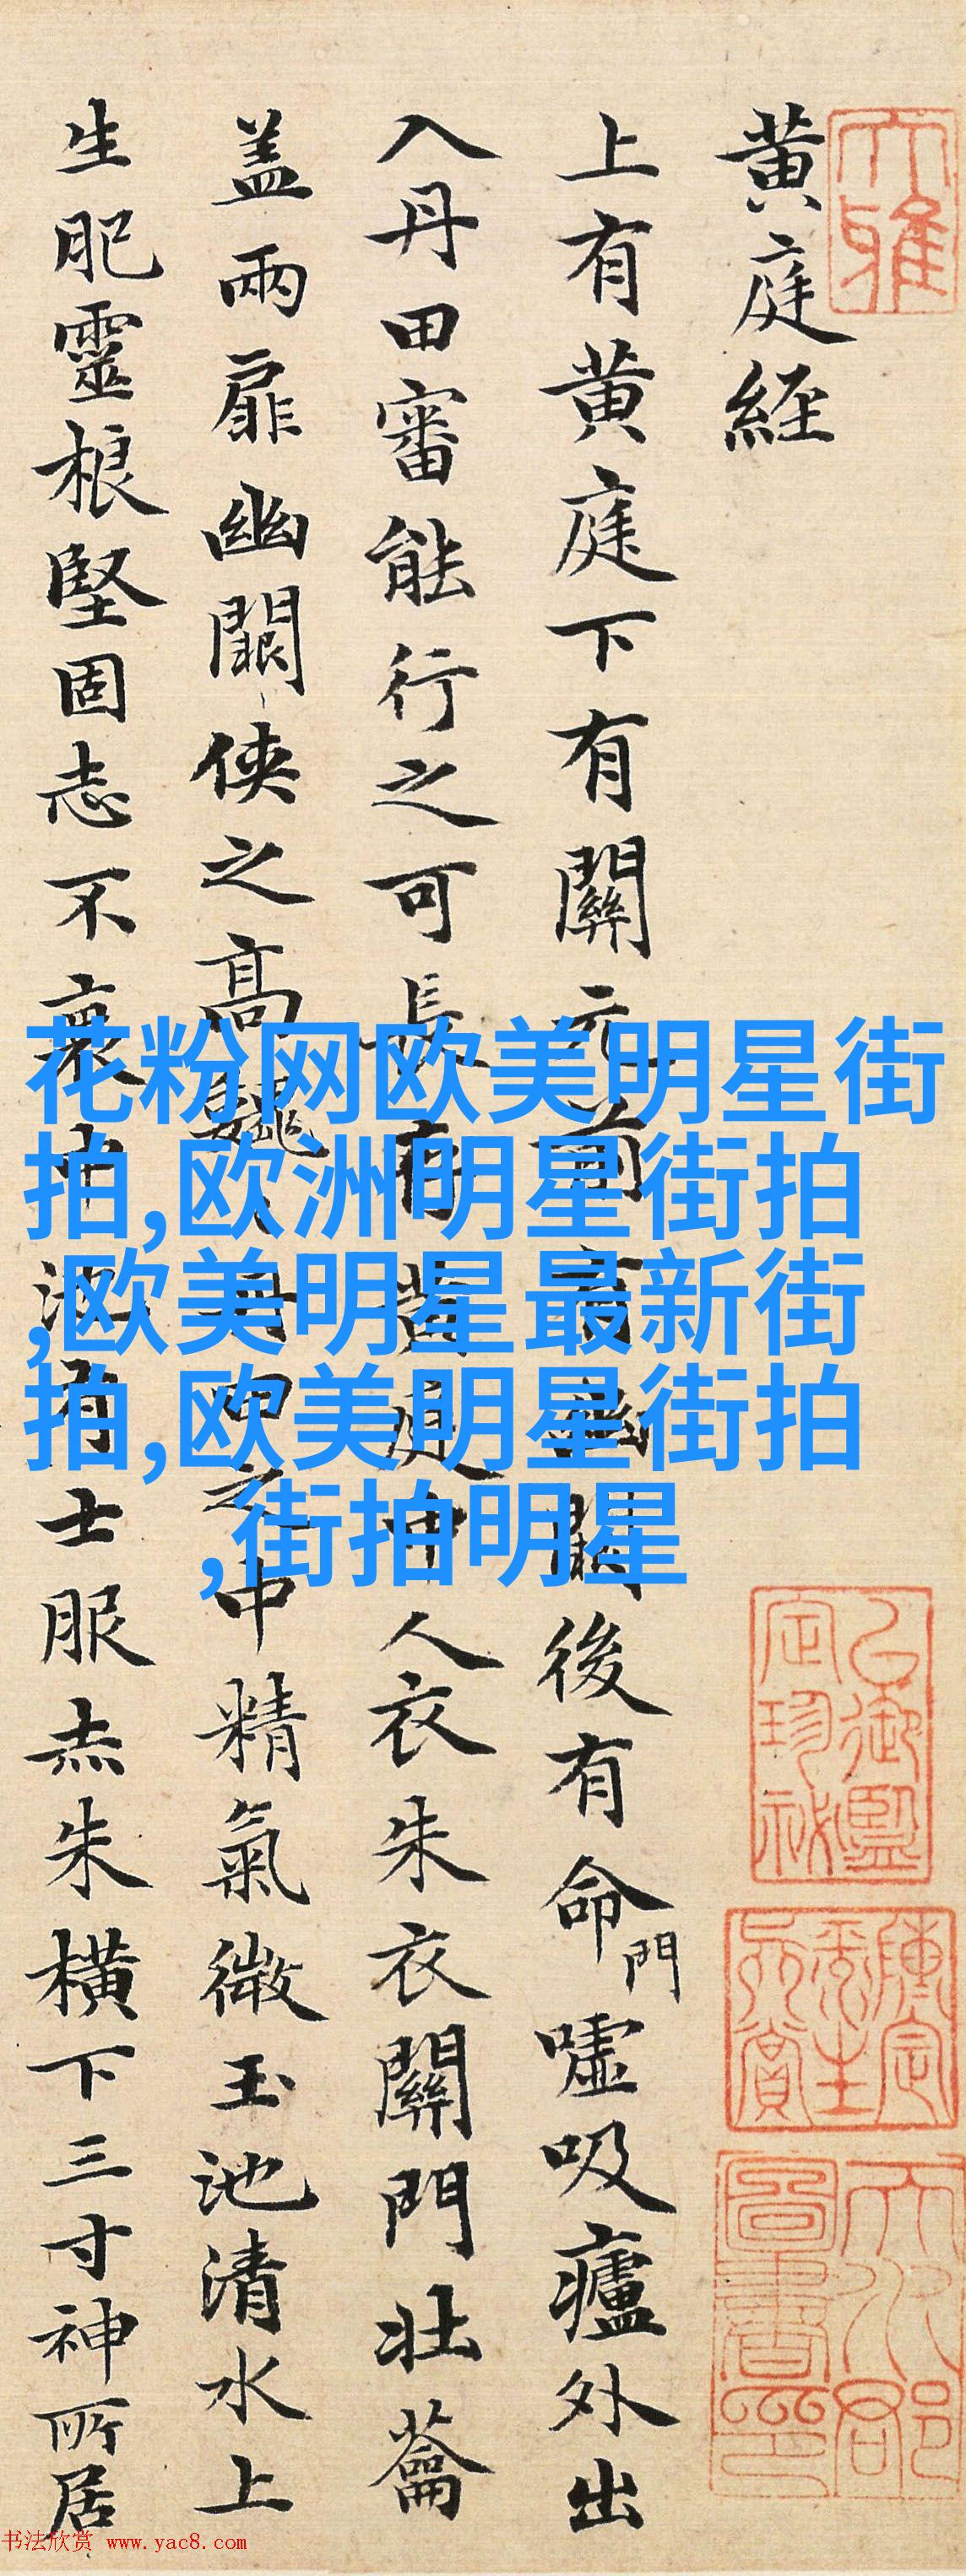 大雅
黄庭経
上有黄庭下有關元前有幽闕後有命門噓吸廬外出
入丹田審能行之可長存黄庭中人衣朱衣關門壯蘥
盖兩扉幽闕侠之高魏丹田之中精氣微玉池清水上
生肥靈根堅固志不衰中池有士服赤朱横下三寸神所居
花粉网欧美明星街
拍,欧洲明星街拍
,欧美明星最新街
拍,欧美明星街拍
,街拍明星
书法欣赏 www.yac8.com